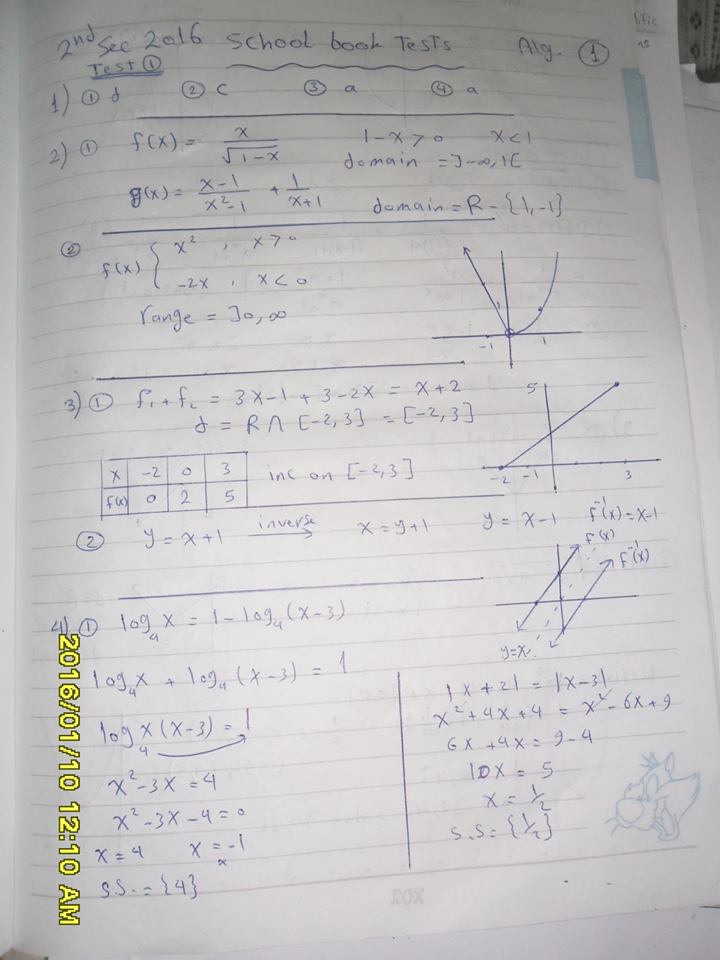 2nd Sec 2016 School book Tests Alg. ①
Test ①
1) ① d ② c ③ a ④ a
2) ① f(x) = x/√(1-x) 1-x>0 x<1
domain = ]-∞,1[
g(x) = (x-1)/(x²-1) + 1/(x+1) domain = R - {1,-1}
② f(x) { x² , x>0
-2x , x<0
range = ]0,∞
-1 1 1
3) ① f₁ + f₂ = 3x-1 + 3-2x = x+2
d = R ∩ [-2,3] = [-2,3]
5
-2 -1 3
x -2 0 3
f(x) 0 2 5
inc on [-2,3]
② y = x+1 inverse → x = y+1 y = x-1 f⁻¹(x) = x-1
f(x)
f⁻¹(x)
y=x
4) ① log₄x = 1 - log₄(x-3)
log₄x + log₄(x-3) = 1
log₄ x(x-3) = 1
x²-3x = 4
x²-3x-4 = 0
x = 4 x = -1
×
S.S. = {4}
|x+2| = |x-3|
x²+4x+4 = x²-6x+9
6x+4x = 9-4
10x = 5
x = ½
S.S = {½}
ROX
2016/01/10 12:10 AM